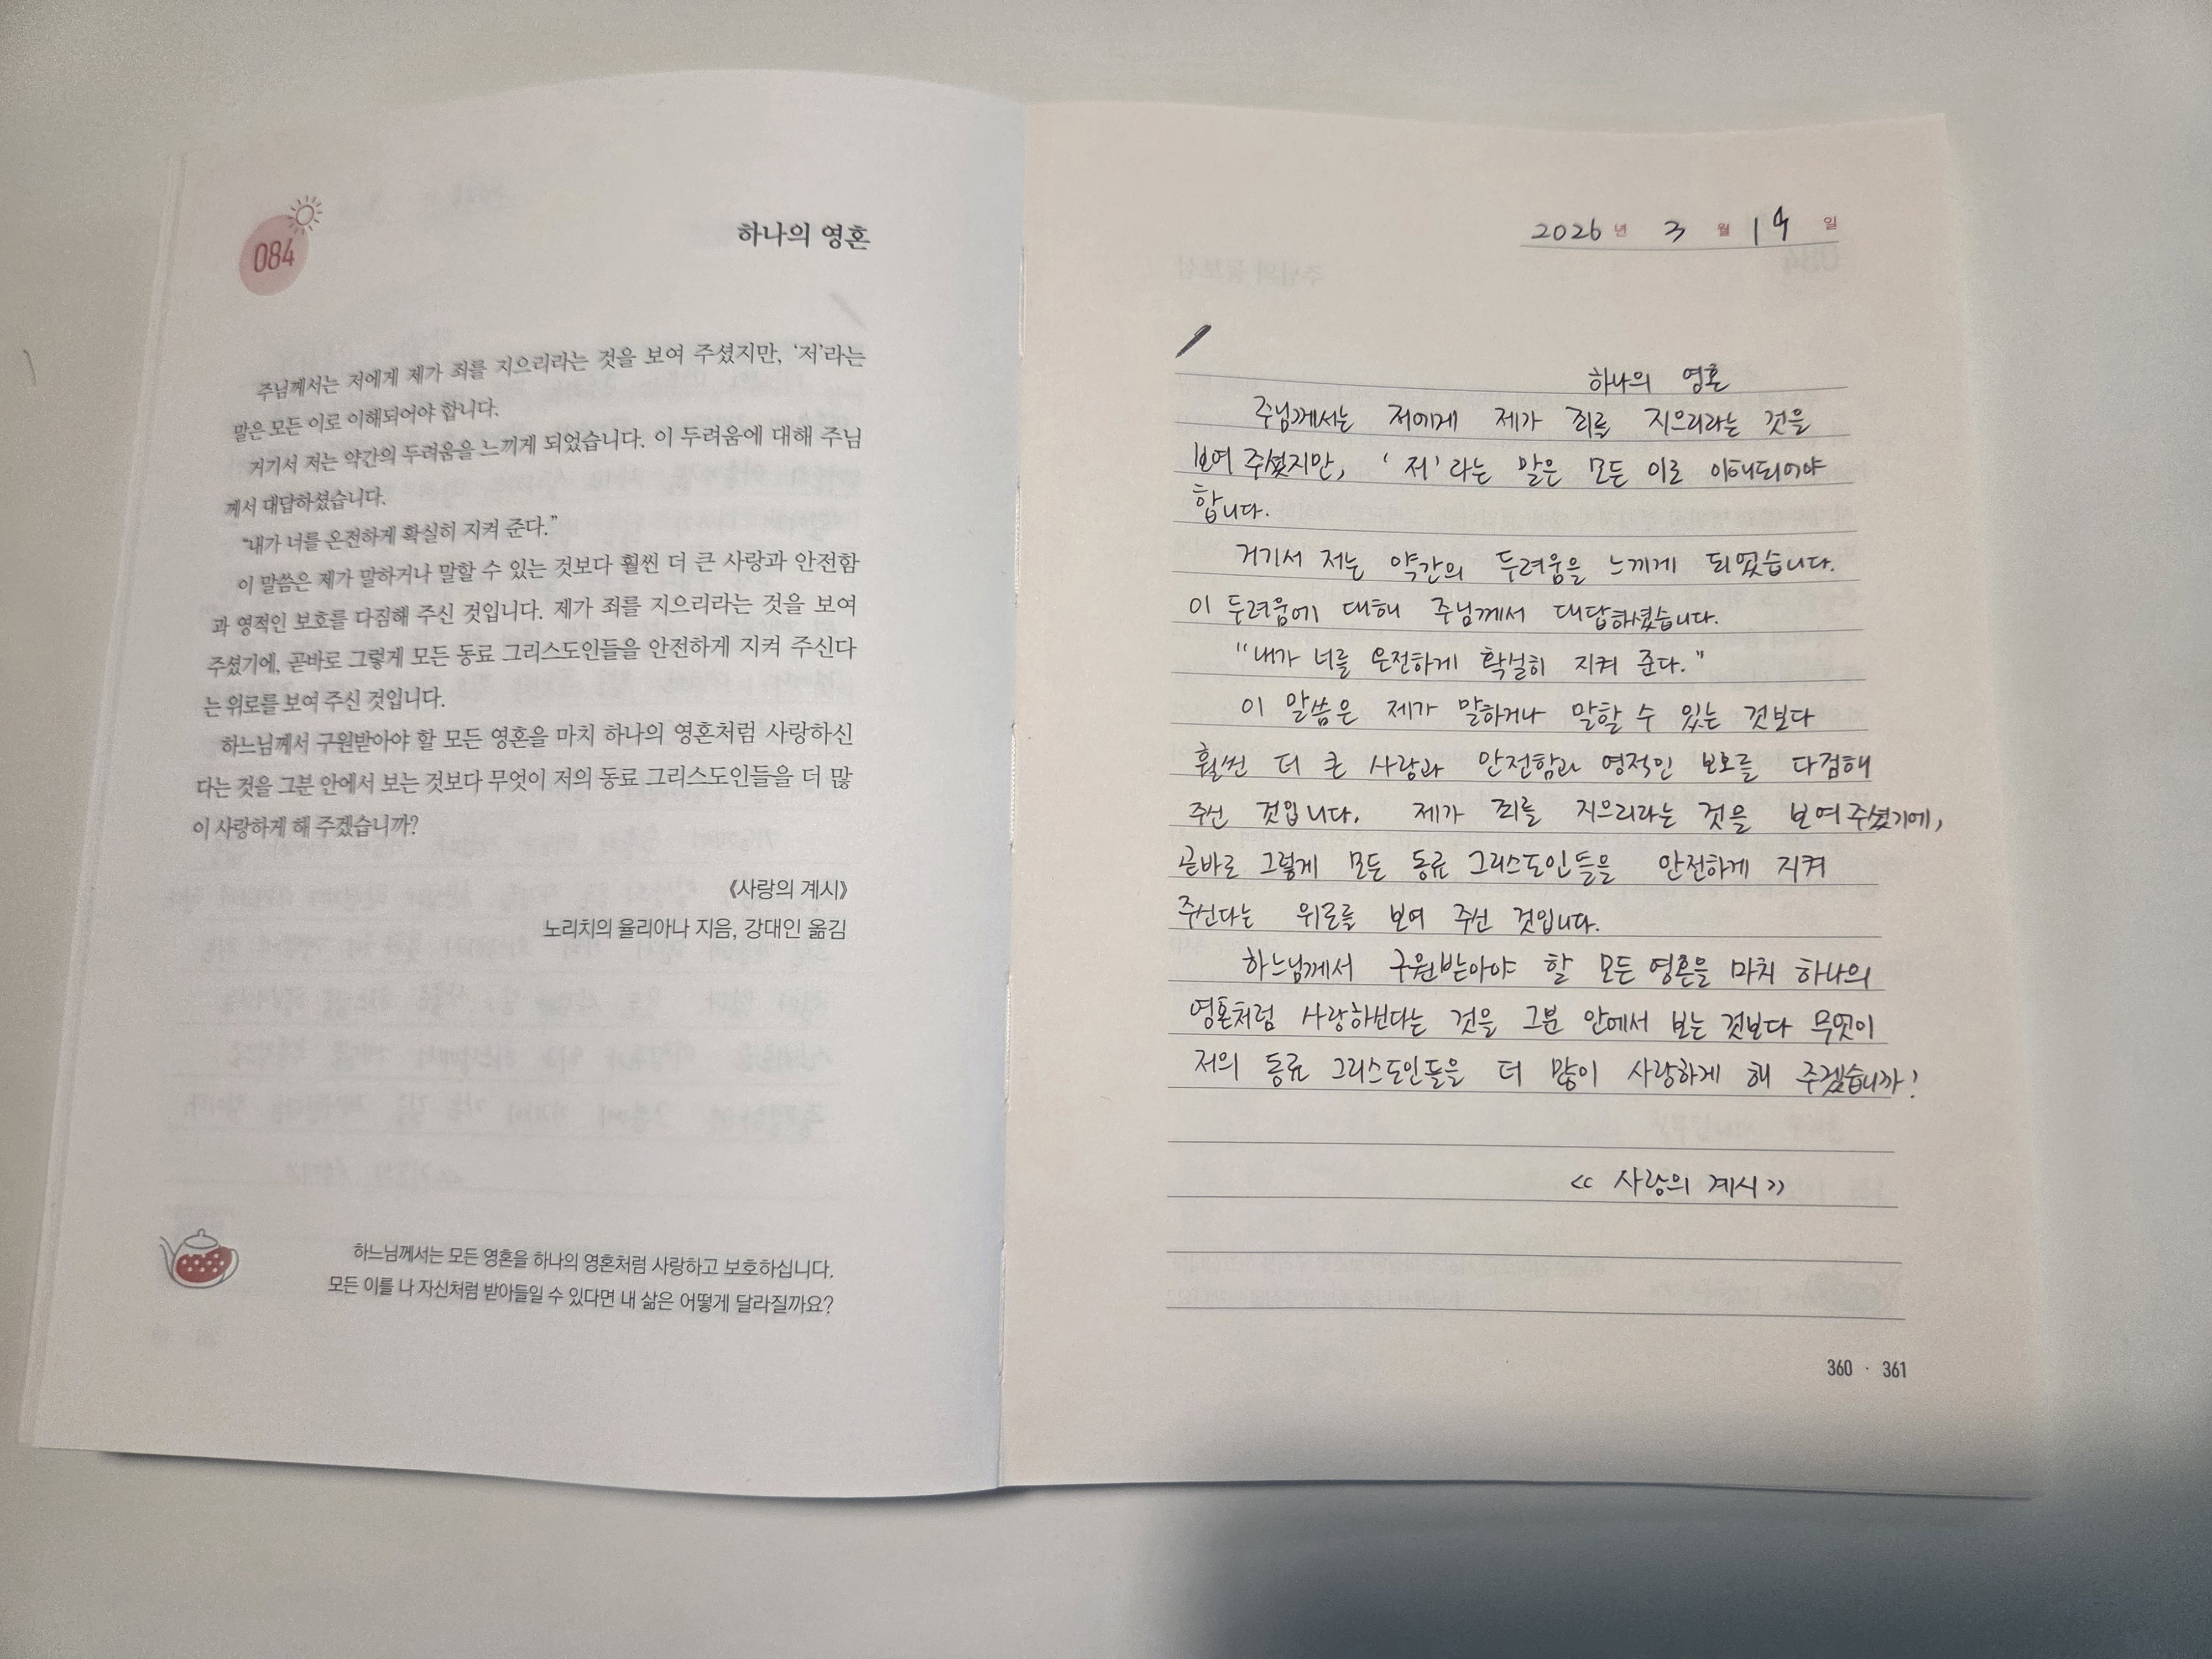 084
하나의 영혼
주님께서는 저에게 제가 죄를 지으리라는 것을 보여 주셨지만, ‘저’라는
말은 모든 이로 이해되어야 합니다.
거기서 저는 약간의 두려움을 느끼게 되었습니다. 이 두려움에 대해 주님
께서 대답하셨습니다.
“내가 너를 온전하게 확실히 지켜 준다.”
이 말씀은 제가 말하거나 말할 수 있는 것보다 훨씬 더 큰 사랑과 안전함
과 영적인 보호를 다짐해 주신 것입니다. 제가 죄를 지으리라는 것을 보여
주셨기에, 곧바로 그렇게 모든 동료 그리스도인들을 안전하게 지켜 주신다
는 위로를 보여 주신 것입니다.
하느님께서 구원받아야 할 모든 영혼을 마치 하나의 영혼처럼 사랑하신
다는 것을 그분 안에서 보는 것보다 무엇이 저의 동료 그리스도인들을 더 많
이 사랑하게 해 주겠습니까?
《사랑의 계시》
노리치의 율리아나 지음, 강대인 옮김
하느님께서는 모든 영혼을 하나의 영혼처럼 사랑하고 보호하십니다.
모든 이를 나 자신처럼 받아들일 수 있다면 내 삶은 어떻게 달라질까요?
2026년 3월 19일
하나의 영혼
주님께서는 저에게 제가 죄를 지으리라는 것을
보여 주셨지만, ‘저’라는 말은 모든 이로 이해되어야
합니다.
거기서 저는 약간의 두려움을 느끼게 되었습니다.
이 두려움에 대해 주님께서 대답하셨습니다.
“내가 너를 온전하게 확실히 지켜 준다.”
이 말씀은 제가 말하거나 말할 수 있는 것보다
훨씬 더 큰 사랑과 안전함과 영적인 보호를 다짐해
주신 것입니다. 제가 죄를 지으리라는 것을 보여 주셨기에,
곧바로 그렇게 모든 동료 그리스도인들을 안전하게 지켜
주신다는 위로를 보여 주신 것입니다.
하느님께서 구원받아야 할 모든 영혼을 마치 하나의
영혼처럼 사랑하신다는 것을 그분 안에서 보는 것보다 무엇이
저의 동료 그리스도인들을 더 많이 사랑하게 해 주겠습니까?
<< 사랑의 계시 >>
360 · 361